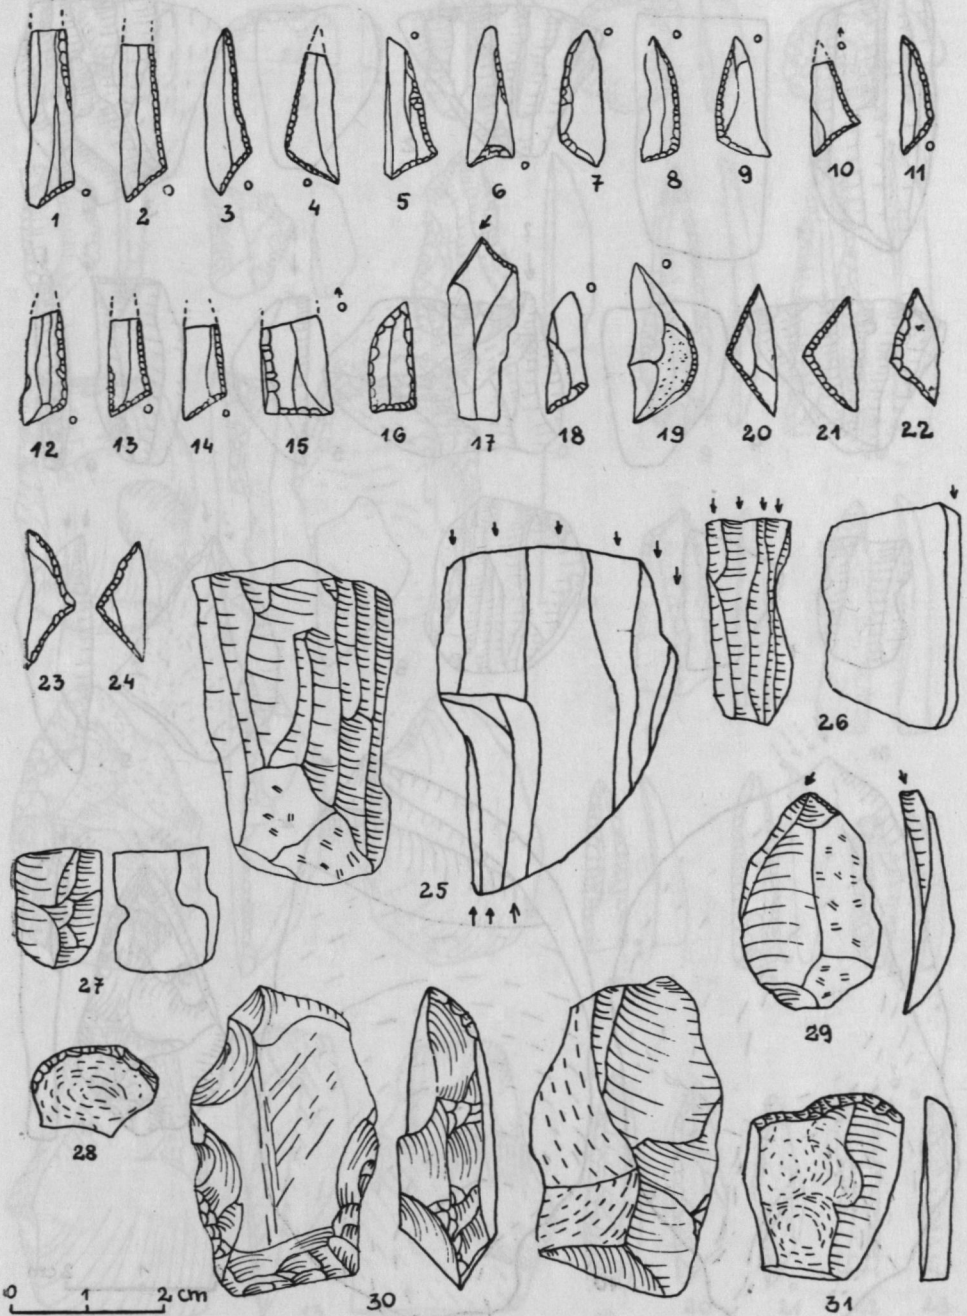 1 2 3 4 5 6 7 8 9 10 11
12 13 14 15 16 17 18 19 20 21 22
23 24
25
26
27
28
29
30
31
0 1 2 cm